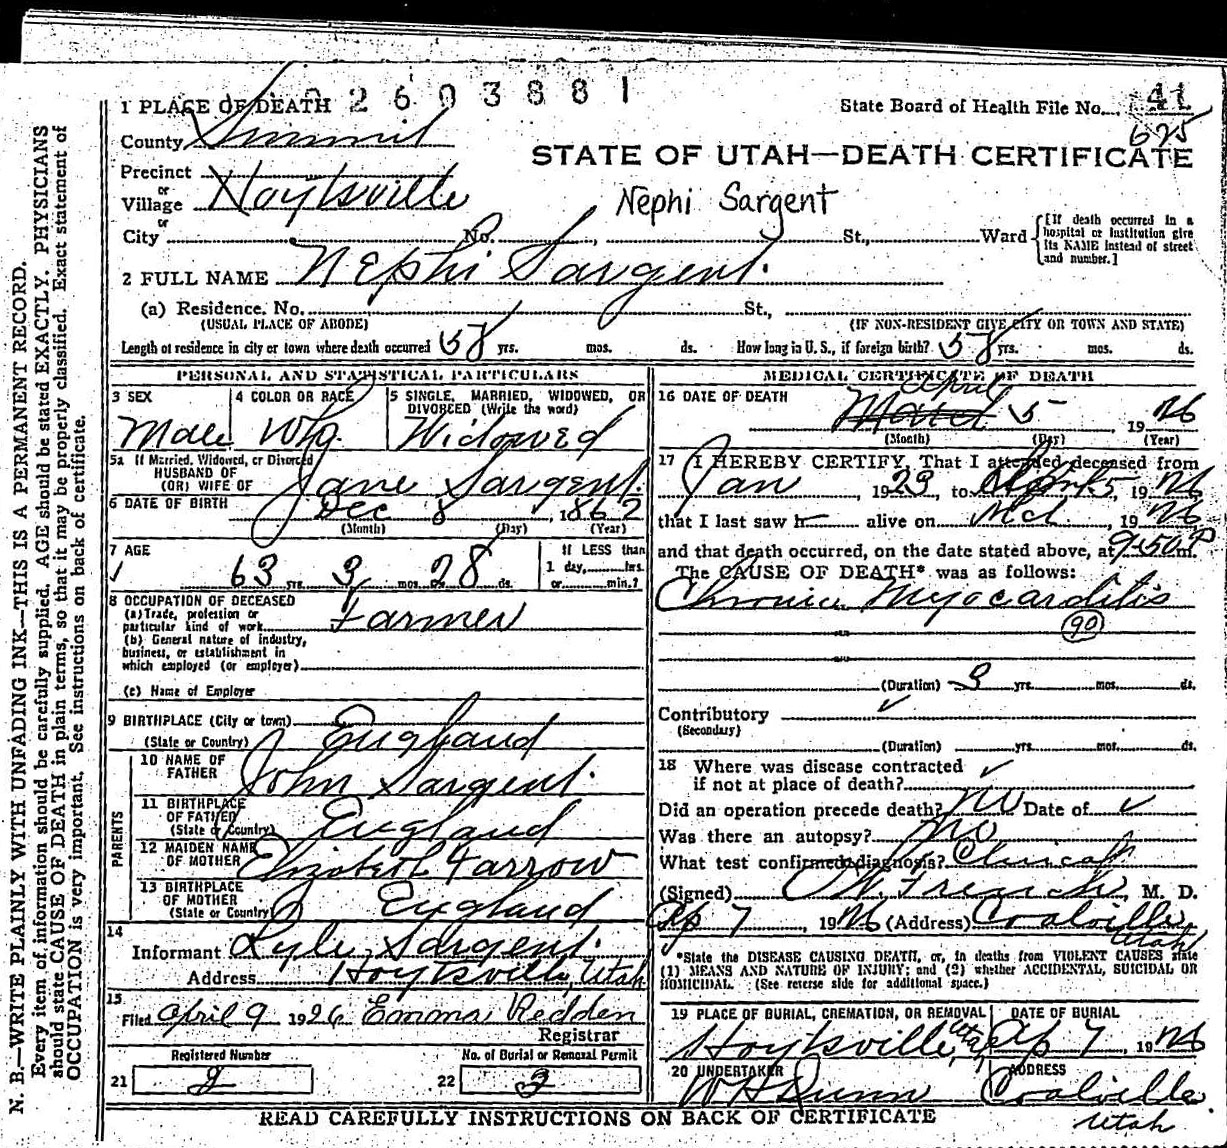 2603881
1 PLACE OF DEATH
State Board of Health File No. 41
County Summit
625
STATE OF UTAH—DEATH CERTIFICATE
Precinct
or
Village Hoytsville
Nephi Sargent
or
City No. , St., Ward
[If death occurred in a hospital or institution give its NAME instead of street and number.]
2 FULL NAME Nephi Sargent.
(a) Residence. No. St.,
(USUAL PLACE OF ABODE) (IF NON-RESIDENT GIVE CITY OR TOWN AND STATE)
Length of residence in city or town where death occurred 58 yrs. mos. ds. How long in U. S., if foreign birth? 58 yrs. mos. ds.
PERSONAL AND STATISTICAL PARTICULARS
3 SEX 4 COLOR OR RACE 5 SINGLE, MARRIED, WIDOWED, OR DIVORCED (Write the word)
Male Wh. Widowed
5a If Married, Widowed, or Divorced
HUSBAND OF
(OR) WIFE OF Jane Sargent.
6 DATE OF BIRTH Dec 8, 1862
(Month) (Day) (Year)
7 AGE
63 yrs. 3 mos. 28 ds.
If LESS than 1 day, hrs. or min.?
8 OCCUPATION OF DECEASED
(a) Trade, profession or particular kind of work Farmer
(b) General nature of industry, business, or establishment in which employed (or employer)
(c) Name of Employer
9 BIRTHPLACE (City or town)
(State or Country) England
PARENTS
10 NAME OF FATHER John Sargent.
11 BIRTHPLACE OF FATHER
(State or Country) England
12 MAIDEN NAME OF MOTHER Elizabeth Farrow
13 BIRTHPLACE OF MOTHER
(State or Country) England
14
Informant Lyle Sargent.
Address Hoytsville, Utah
15
Filed April 9 1926 Emma Redden
Registrar
Registered Number No. of Burial or Removal Permit
21 2 22 3
MEDICAL CERTIFICATE OF DEATH
16 DATE OF DEATH April
March 5, 1926
(Month) (Day) (Year)
17 I HEREBY CERTIFY, That I attended deceased from
Jan, 1923, to April 5, 1926
that I last saw h alive on Mch., 1926
and that death occurred, on the date stated above, at 9-50 P m.
The CAUSE OF DEATH* was as follows:
Chronic Myocarditis
90
(Duration) 3 yrs. mos. ds.
Contributory
(Secondary)
(Duration) yrs. mos. ds.
18 Where was disease contracted
if not at place of death?
Did an operation precede death? no Date of
Was there an autopsy? no
What test confirmed diagnosis? Clinical
(Signed) French, M. D.
Ap 7, 1926 (Address) Coalville
Utah
*State the DISEASE CAUSING DEATH, or, in deaths from VIOLENT CAUSES state
(1) MEANS AND NATURE OF INJURY; and (2) whether ACCIDENTAL, SUICIDAL OR
HOMICIDAL. (See reverse side for additional space.)
19 PLACE OF BURIAL, CREMATION, OR REMOVAL DATE OF BURIAL
Hoytsville, Utah, Ap 7, 1926
20 UNDERTAKER ADDRESS
W H Dunn Coalville
Utah
READ CAREFULLY INSTRUCTIONS ON BACK OF CERTIFICATE
N. B.—WRITE PLAINLY WITH UNFADING INK—THIS IS A PERMANENT RECORD.
Every item of information should be carefully supplied. AGE should be stated EXACTLY. PHYSICIANS
should state CAUSE OF DEATH in plain terms, so that it may be properly classified. Exact statement of
OCCUPATION is very important. See instructions on back of certificate.